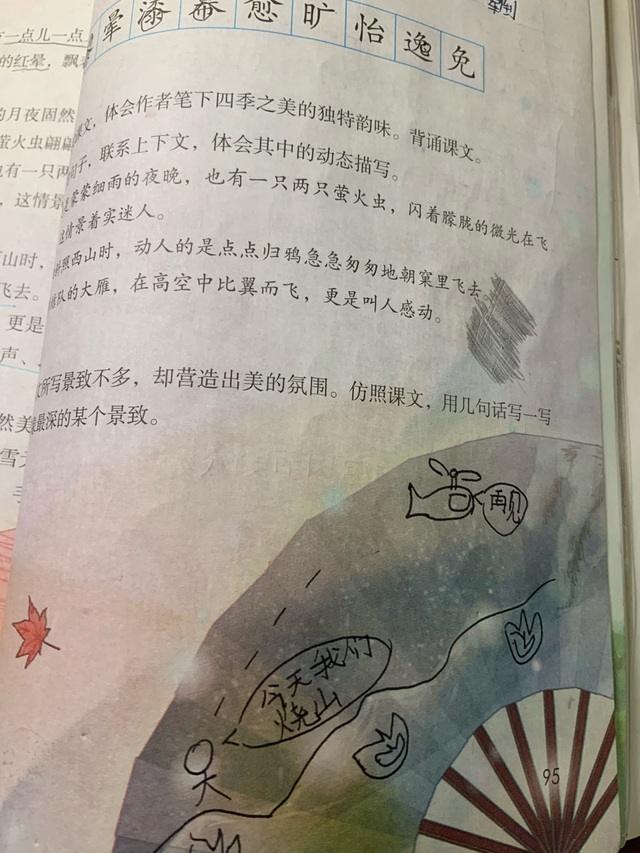 一点儿一点
的红晕，飘
的月夜固然
萤火虫翩翩
也有一只两
，这情景
山时，
飞去。
更是
声、
然美
雪
晕 漆 幕 愈 旷 怡 逸 免
课文，体会作者笔下四季之美的独特韵味。背诵课文。
句子，联系上下文，体会其中的动态描写。
是蒙蒙细雨的夜晚，也有一只两只萤火虫，闪着朦胧的微光在飞
这情景着实迷人。
斜照西山时，动人的是点点归鸦急急匆匆地朝窠里飞去
结队的大雁，在高空中比翼而飞，更是叫人感动。
所写景致不多，却营造出美的氛围。仿照课文，用几句话写一写
最深的某个景致。
再见
今天我们
烧山
95